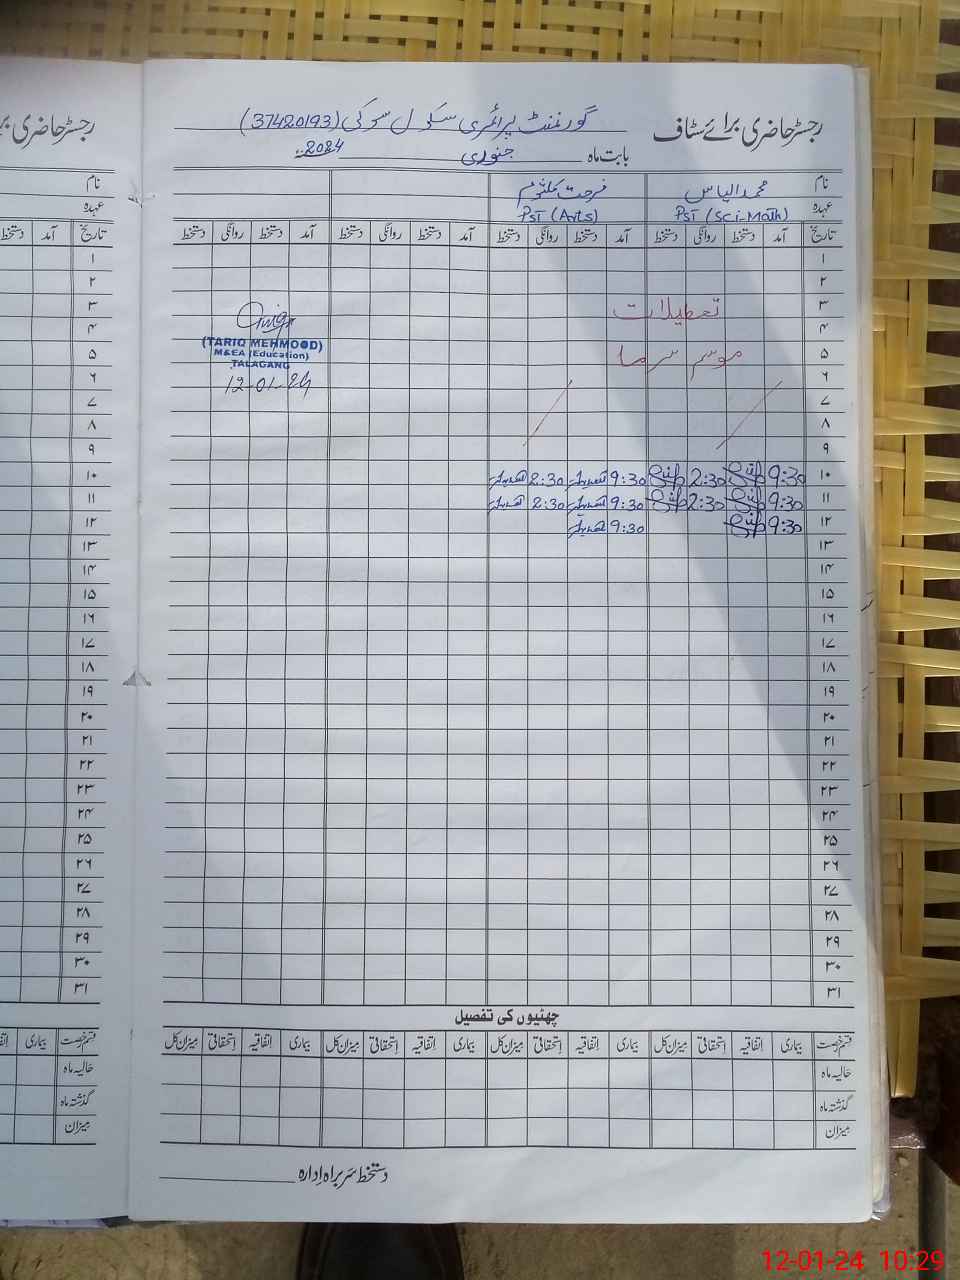 رجسٹر حاضری برائے سٹاف
گورنمنٹ پرائمری سکول سوکی (37420193)
بابت ماہ جنوری 2024
نام محمد الیاس فرحت کلثوم
عہدہ PST (Sci-Math) PST (Arts)
تاریخ آمد دستخط روانگی دستخط آمد دستخط روانگی دستخط آمد دستخط روانگی دستخط آمد دستخط روانگی دستخط
۱
۲
۳ تعطیلات
۴
۵ موسم سرما
۶
۷
۸
۹
۱۰ 9:30 2:30 9:30 2:30
۱۱ 9:30 2:30 9:30 2:30
۱۲ 9:30 9:30
۱۳
۱۴
۱۵
۱۶
۱۷
۱۸
۱۹
۲۰
۲۱
۲۲
۲۳
۲۴
۲۵
۲۶
۲۷
۲۸
۲۹
۳۰
۳۱
(TARIQ MEHMOOD)
M&EA (Education)
TALAGANG
12-01-24
چھٹیوں کی تفصیل
قسم رخصت بیماری اتفاقیہ استحقاقی میزان کل بیماری اتفاقیہ استحقاقی میزان کل بیماری اتفاقیہ استحقاقی میزان کل بیماری اتفاقیہ استحقاقی میزان کل
حالیہ ماہ
گذشتہ ماہ
میزان
دستخط سربراہ ادارہ
رجسٹر حاضری
نام
عہدہ
تاریخ آمد دستخط
۱
۲
۳
۴
۵
۶
۷
۸
۹
۱۰
۱۱
۱۲
۱۳
۱۴
۱۵
۱۶
۱۷
۱۸
۱۹
۲۰
۲۱
۲۲
۲۳
۲۴
۲۵
۲۶
۲۷
۲۸
۲۹
۳۰
۳۱
قسم رخصت بیماری
حالیہ ماہ
گذشتہ ماہ
میزان
12-01-24 10:29